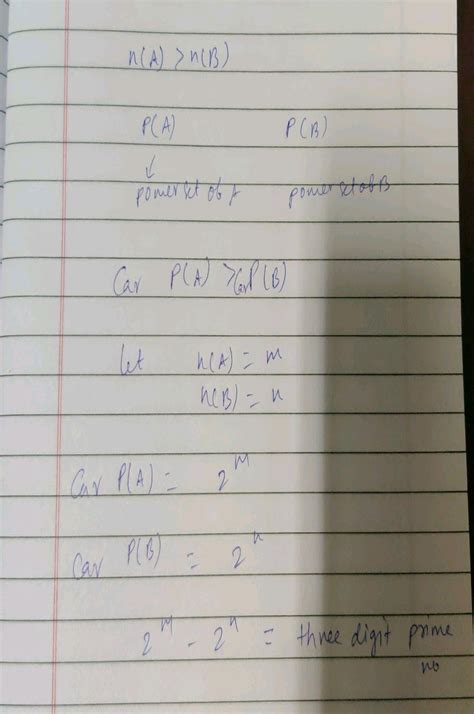 n(A) > n(B)
P(A) P(B)
↓
power set of A power set of B
Car P(A) > Car P(B)
let n(A) = m
n(B) = n
Car P(A) = 2^m
Car P(B) = 2^n
2^m - 2^n = three digit prime
no